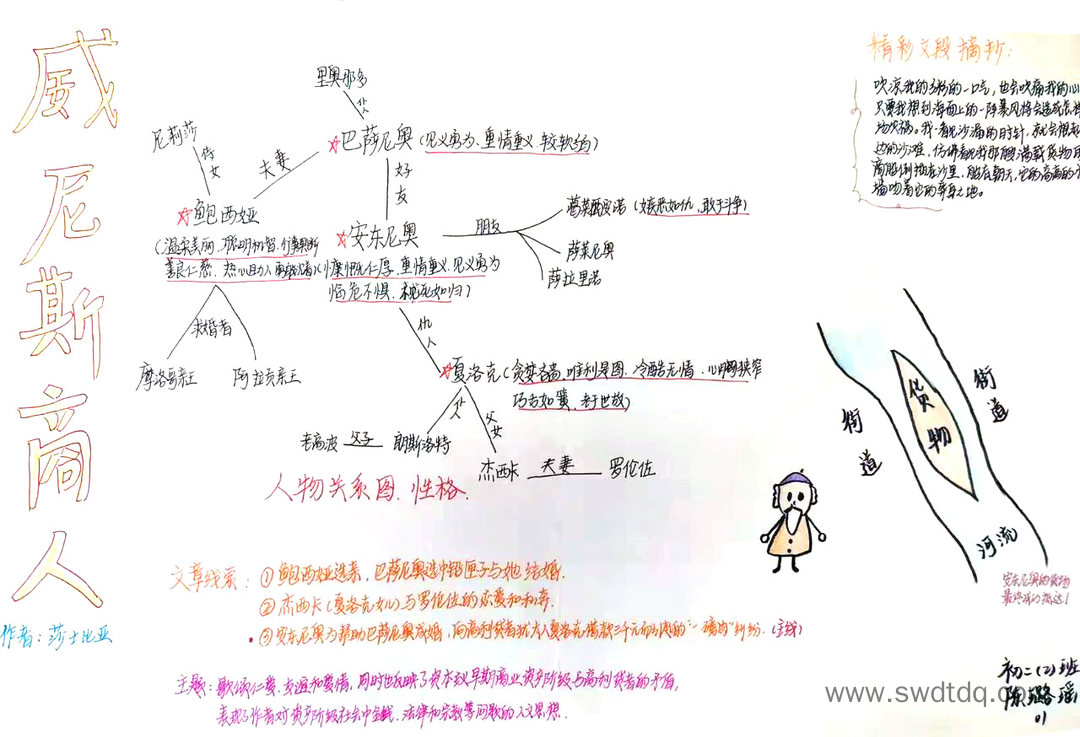 威尼斯商人
作者：莎士比亚
里奥那多
仆
尼莉莎
侍女
夫妻
☆巴萨尼奥（见义勇为、重情重义 较软弱）
好友
☆鲍西娅
（温柔美丽、聪明机智、行事果断
善良仁慈、热心助人
求婚者
摩洛哥亲王
阿拉贡亲王
☆安东尼奥
（慷慨仁厚、重情重义、见义勇为
临危不惧、视死如归）
朋友
（嫉恶如仇，敢于斗争）
萨莱尼奥
萨拉里诺
仇人
☆夏洛克（贪婪吝啬、唯利是图、冷酷无情、心胸狭窄
巧言如簧、老于世故）
仆人
父女
老高波 父子 朗斯洛特
杰西卡 夫妻 罗伦佐
人物关系图、性格.
精彩文段摘抄：
吹凉我的粥的一口气，也会吹痛我的心
只要我想到海面上的一阵暴风将会造成怎样
一看见沙漏的时计，就会想起
边的沙滩，仿佛看见我那艘满载货物的
商船倒插在沙里，船底朝天，它的高高的
吻着它的葬身之地。
街道
货物
街道
河流
安东尼奥的货物
最终成功抵达！
文章线索：①鲍西娅选亲，巴萨尼奥选中铅匣子与她结婚.
②杰西卡（夏洛克女儿）与罗伦佐的恋爱和私奔.
③安东尼奥为帮助巴萨尼奥成婚，向高利贷者犹太人夏洛克借款三千元而引起的“一磅肉”纠纷.（主线）
主题：歌颂仁爱、友谊和爱情，同时也反映了资本主义早期商业资产阶级与高利贷者的矛盾，
表现了作者对资产阶级社会中金钱、法律和宗教等问题的人文思想.
初二（2）班
陈璐瑶
01
www.swdtdq.com